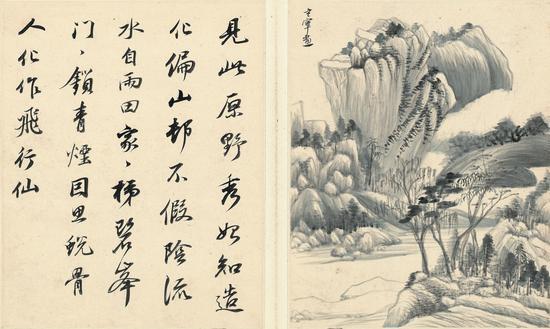 玄宰畫
見此原野秀始知造
化偏山邨不假陰流
水自雨田家々梯碧峯
門々鎖青煙因思蛻骨
人化作飛行仙